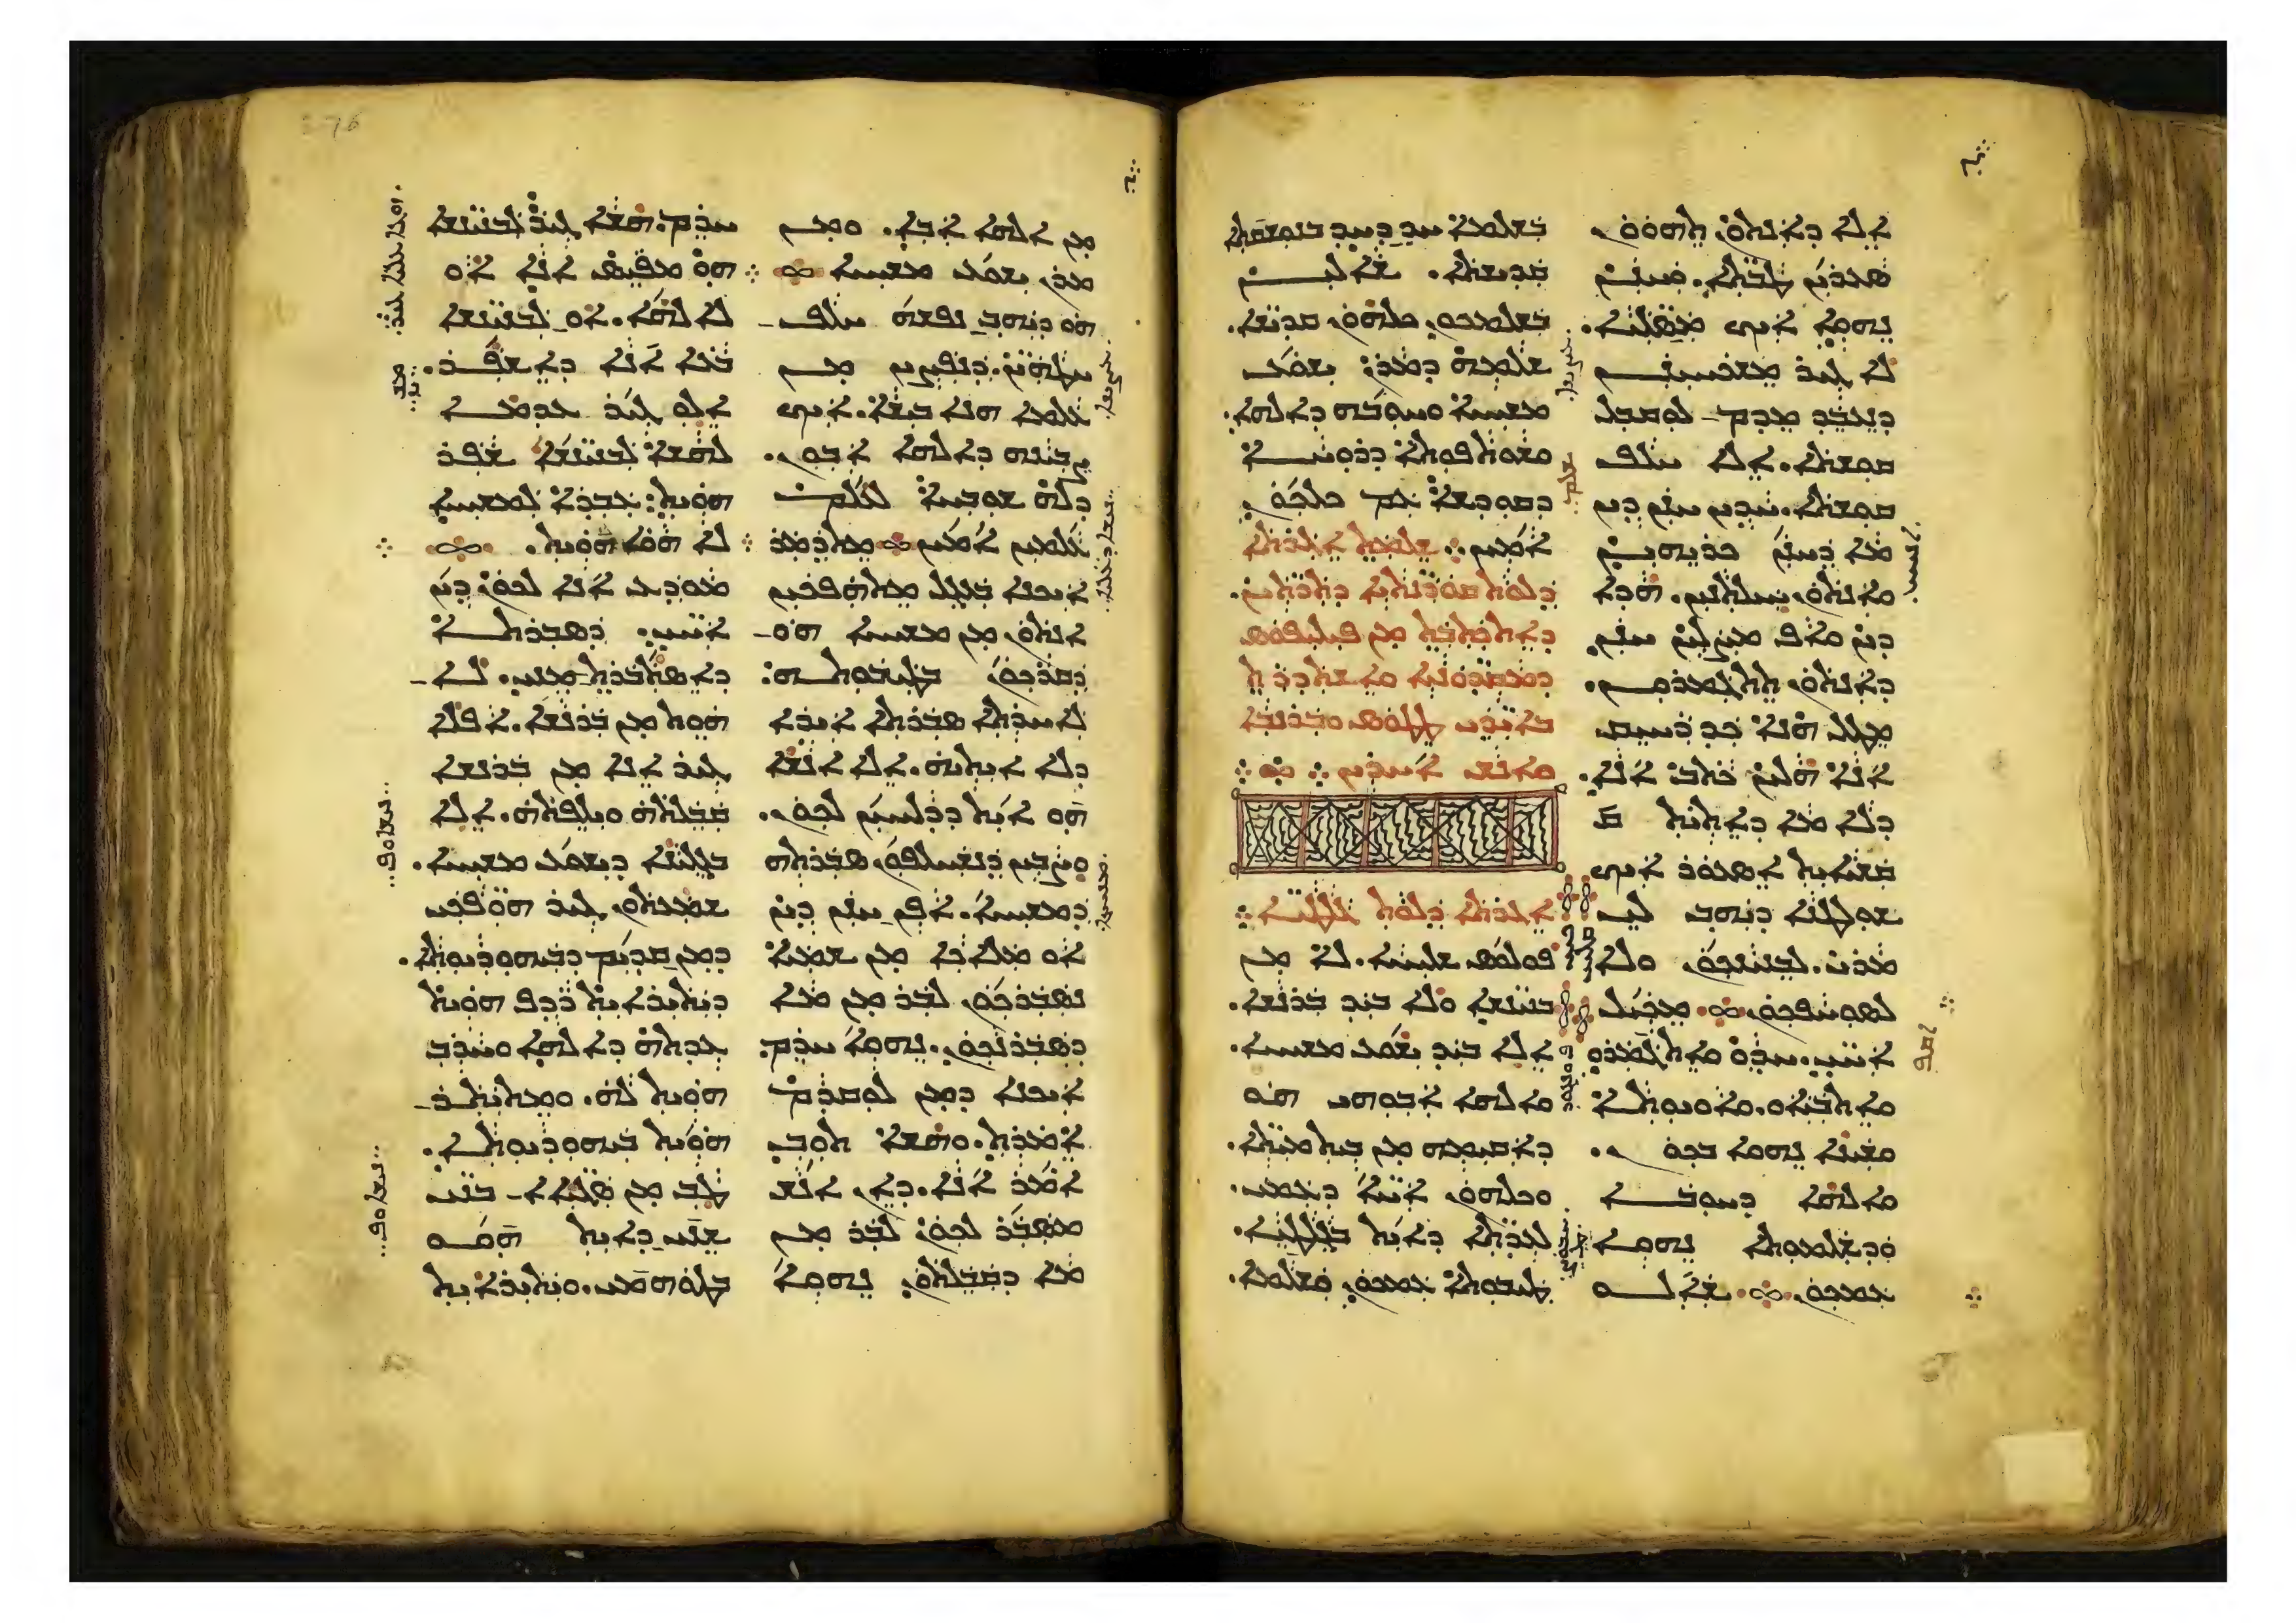 ܐܠܐ ܕܐܢܬܘܢ ܬܗܘܘܢ
ܥܒܕܝܢ ܛܒܬܐ. ܘܚܢܢ
ܢܗܘܐ ܐܝܟ ܡܣܠܝܐ.
ܠܐ ܓܝܪ ܡܫܟܚܝܢܢ
ܕܢܥܒܕ ܡܕܡ ܠܘܩܒܠ
ܩܘܫܬܐ. ܐܠܐ ܚܠܦ
ܩܘܫܬܐ. ܚܕܝܢ ܚܢܢ ܕܝܢ
ܡܐ ܕܚܢܢ ܟܪܝܗܝܢܢ
ܘܐܢܬܘܢ ܚܝܠܬܢܝܢ. ܗܕܐ
ܕܝܢ ܘܐܦ ܡܨܠܝܢ ܚܢܢ
ܕܐܢܬܘܢ ܬܬܓܡܪܘܢ.
ܡܛܠ ܗܢܐ ܟܕ ܪܚܝܩ
ܐܢܐ ܗܠܝܢ ܟܬܒ ܐܢܐ.
ܕܠܐ ܡܐ ܕܐܬܝܬ ܩ
ܩܫܝܐܝܬ ܐܣܥܘܪ ܐܝܟ
ܫܘܠܛܢܐ ܕܝܗܒ ܠܝ
ܡܪܝ. ܠܒܢܝܢܟܘܢ ܘܠܐ
ܠܣܘܚܦܟܘܢ ܀ ܡܟܝܠ
ܐܚܝ. ܚܕܘ ܘܐܬܓܡܪܘ
ܘܐܬܒܝܐܘ. ܘܐܘܝܘܬܐ
ܘܫܝܢܐ ܢܗܘܐ ܒܟܘܢ.
ܘܐܠܗܐ ܕܚܘܒܐ
ܘܕܫܠܡܘܬܐ ܢܗܘܐ
ܥܡܟܘܢ ܀ ܫܐܠܘ
ܒܫܠܡܐ ܚܕ ܕܚܕ ܒܢܘܫܩܬܐ
ܩܕܝܫܬܐ. ܫܐܠܝܢ
ܒܫܠܡܟܘܢ ܟܠܗܘܢ ܩܕܝܫܐ.
ܫܠܡܗ ܕܡܪܢ ܝܫܘܥ
ܡܫܝܚܐ ܘܚܘܒܗ ܕܐܠܗܐ.
ܘܫܘܬܦܘܬܐ ܕܪܘܚܐ
ܕܩܘܕܫܐ ܥܡ ܟܠܟܘܢ
ܐܡܝܢ ܀ ܫܠܡܬ ܐܓܪܬܐ
ܕܠܘܬ ܩܘܪܝܢܬܝܐ ܕܬܪܬܝܢ.
ܕܐܬܟܬܒܬ ܡܢ ܦܝܠܝܦܘܣ
ܕܡܩܕܘܢܝܐ ܘܐܫܬܕܪܬ
ܒܐܝܕܝ ܛܛܘܣ ܘܒܪܢܒܐ
ܘܐܢܫ ܐܚܪܝܢ ܀
ܐܓܪܬܐ ܕܠܘܬ ܓܠܛܝܐ ܀
ܦܘܠܘܣ ܫܠܝܚܐ. ܠܐ ܡܢ
ܒܢܝܢܫܐ ܘܠܐ ܒܝܕ ܒܪܢܫܐ.
ܐܠܐ ܒܝܕ ܝܫܘܥ ܡܫܝܚܐ.
ܘܐܠܗܐ ܐܒܘܗܝ ܗܘ
ܕܐܩܝܡܗ ܡܢ ܒܝܬ ܡܝܬܐ.
ܘܟܠܗܘܢ ܐܚܐ ܕܥܡܝ.
ܠܥܕܬܐ ܕܐܝܬ ܒܓܠܛܝܐ.
ܛܝܒܘܬܐ ܥܡܟܘܢ ܘܫܠܡܐ.
ܡܢ ܐܠܗܐ ܐܒܐ. ܘܡܢ
ܡܪܢ ܝܫܘܥ ܡܫܝܚܐ ܀
ܗܘ ܕܝܗܒ ܢܦܫܗ ܚܠܦ
ܚܛܗܝܢ. ܕܢܦܨܝܢ ܡܢ
ܥܠܡܐ ܗܢܐ ܒܝܫܐ. ܐܝܟ
ܨܒܝܢܗ ܕܐܠܗܐ ܐܒܘܢ.
ܕܠܗ ܫܘܒܚܐ ܠܥܠܡ
ܥܠܡܝܢ ܐܡܝܢ ܀ ܡܬܕܡܪ
ܐܢܐ ܐܝܟܢܐ ܒܥܓܠ ܡܬܗܦܟܝܢ
ܐܢܬܘܢ ܡܢ ܡܫܝܚܐ ܗܘ
ܕܩܪܟܘܢ ܒܛܝܒܘܬܗ:
ܠܐܚܪܬܐ ܣܒܪܬܐ ܐܝܕܐ
ܕܠܐ ܐܝܬܝܗ. ܐܠܐ ܐܢܫܐ
ܗܘ ܐܝܬ ܕܕܠܚܝܢ ܠܟܘܢ.
ܘܨܒܝܢ ܕܢܫܚܠܦܘܢ ܣܒܪܬܗ
ܕܡܫܝܚܐ. ܐܦ ܚܢܢ ܕܝܢ
ܐܘ ܡܠܐܟܐ ܡܢ ܫܡܝܐ
ܢܣܒܪܟܘܢ ܠܒܪ ܡܢ ܡܐ
ܕܣܒܪܢܟܘܢ. ܢܗܘܐ ܚܪܡ
ܐܝܟܢܐ ܕܡܢ ܠܘܩܕܡ
ܐܡܪܬ. ܘܗܫܐ ܬܘܒ
ܐܡܪ ܐܢܐ. ܕܐܢ ܐܢܫ
ܡܣܒܪ ܠܟܘܢ ܠܒܪ ܡܢ
ܡܐ ܕܩܒܠܬܘܢ. ܢܗܘܐ
ܚܪܡ. ܗܫܐ ܓܝܪ ܠܒܢܝܢܫܐ
ܗܘ ܡܦܝܣ ܐܢܐ ܐܘ
ܠܐܠܗܐ. ܐܘ ܠܒܢܝܢܫܐ
ܒܥܐ ܐܢܐ ܕܐܫܦܪ.
ܐܠܘ ܓܝܪ ܥܕܡܐ
ܠܗܫܐ ܠܒܢܝܢܫܐ ܫܦܪ
ܗܘܝܬ: ܥܒܕܐ ܠܡܫܝܚܐ
ܠܐ ܗܘܐ ܗܘܝܬ ܀
ܡܘܕܥ ܐܢܐ ܠܟܘܢ ܕܝܢ
ܐܚܝ. ܕܣܒܪܬܐ
ܕܐܣܬܒܪܬ ܡܢܝ. ܠܐ
ܗܘܬ ܡܢ ܒܪܢܫܐ. ܐܦܠܐ
ܓܝܪ ܐܢܐ ܡܢ ܒܪܢܫܐ
ܩܒܠܬܗ ܘܝܠܦܬܗ. ܐܠܐ
ܒܓܠܝܢܐ ܕܝܫܘܥ ܡܫܝܚܐ.
ܫܡܥܬܘܢ ܓܝܪ ܗܘܦܟܝ
ܕܡܢ ܩܕܝܡ ܕܒܝܗܘܕܝܘܬܐ.
ܕܝܬܝܪܐܝܬ ܪܕܦ ܗܘܝܬ
ܥܕܬܗ ܕܐܠܗܐ ܘܚܪܒ
ܗܘܝܬ ܠܗ. ܘܡܬܝܬܪ
ܗܘܝܬ ܒܝܗܘܕܝܘܬܐ.
ܛܒ ܡܢ ܣܓܝܐܐ ܒܢܝ
ܫܢܝ ܕܐܝܬ ܗܘܘ
ܒܛܘܗܡܝ. ܘܝܬܝܪܐܝܬ